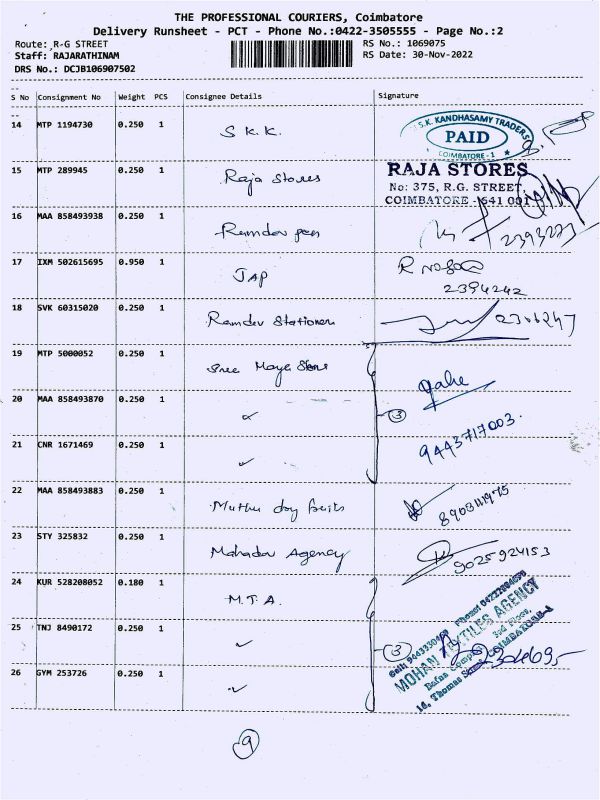 THE PROFESSIONAL COURIERS, Coimbatore
Delivery Runsheet - PCT - Phone No.:0422-3505555 - Page No.:2
Route: R-G STREET
RS No.: 1069075
Staff: RAJARATHINAM
RS Date: 30-Nov-2022
DRS No.: DCJB106907502
S No Consignment No Weight PCS Consignee Details Signature
14 MTP 1194730 0.250 1 S K.K.
S.K. KANDHASAMY TRADERS
PAID
COIMBATORE - 1
15 MTP 289945 0.250 1 Raja Stores
RAJA STORES
No: 375, R.G. STREET,
COIMBATORE - 641 001
16 MAA 858493938 0.250 1 Ramdev pen
2393273
17 IXM 502615695 0.950 1 JAP
2394242
18 SVK 60315020 0.250 1 Ramdev Stationery
19 MTP 5000052 0.250 1 Sree Maya Store
20 MAA 858493870 0.250 1
3
21 CNR 1671469 0.250 1 ✓
9443717003.
22 MAA 858493883 0.250 1 Muthu dry fruits
23 STY 325832 0.250 1 Mahadev Agency
9025924153
24 KUR 528208052 0.180 1 M.T.A.
25 TNJ 8490172 0.250 1 ✓
3
MOHAN TEXTILES AGENCY
2304695
26 GYM 253726 0.250 1 ✓
9